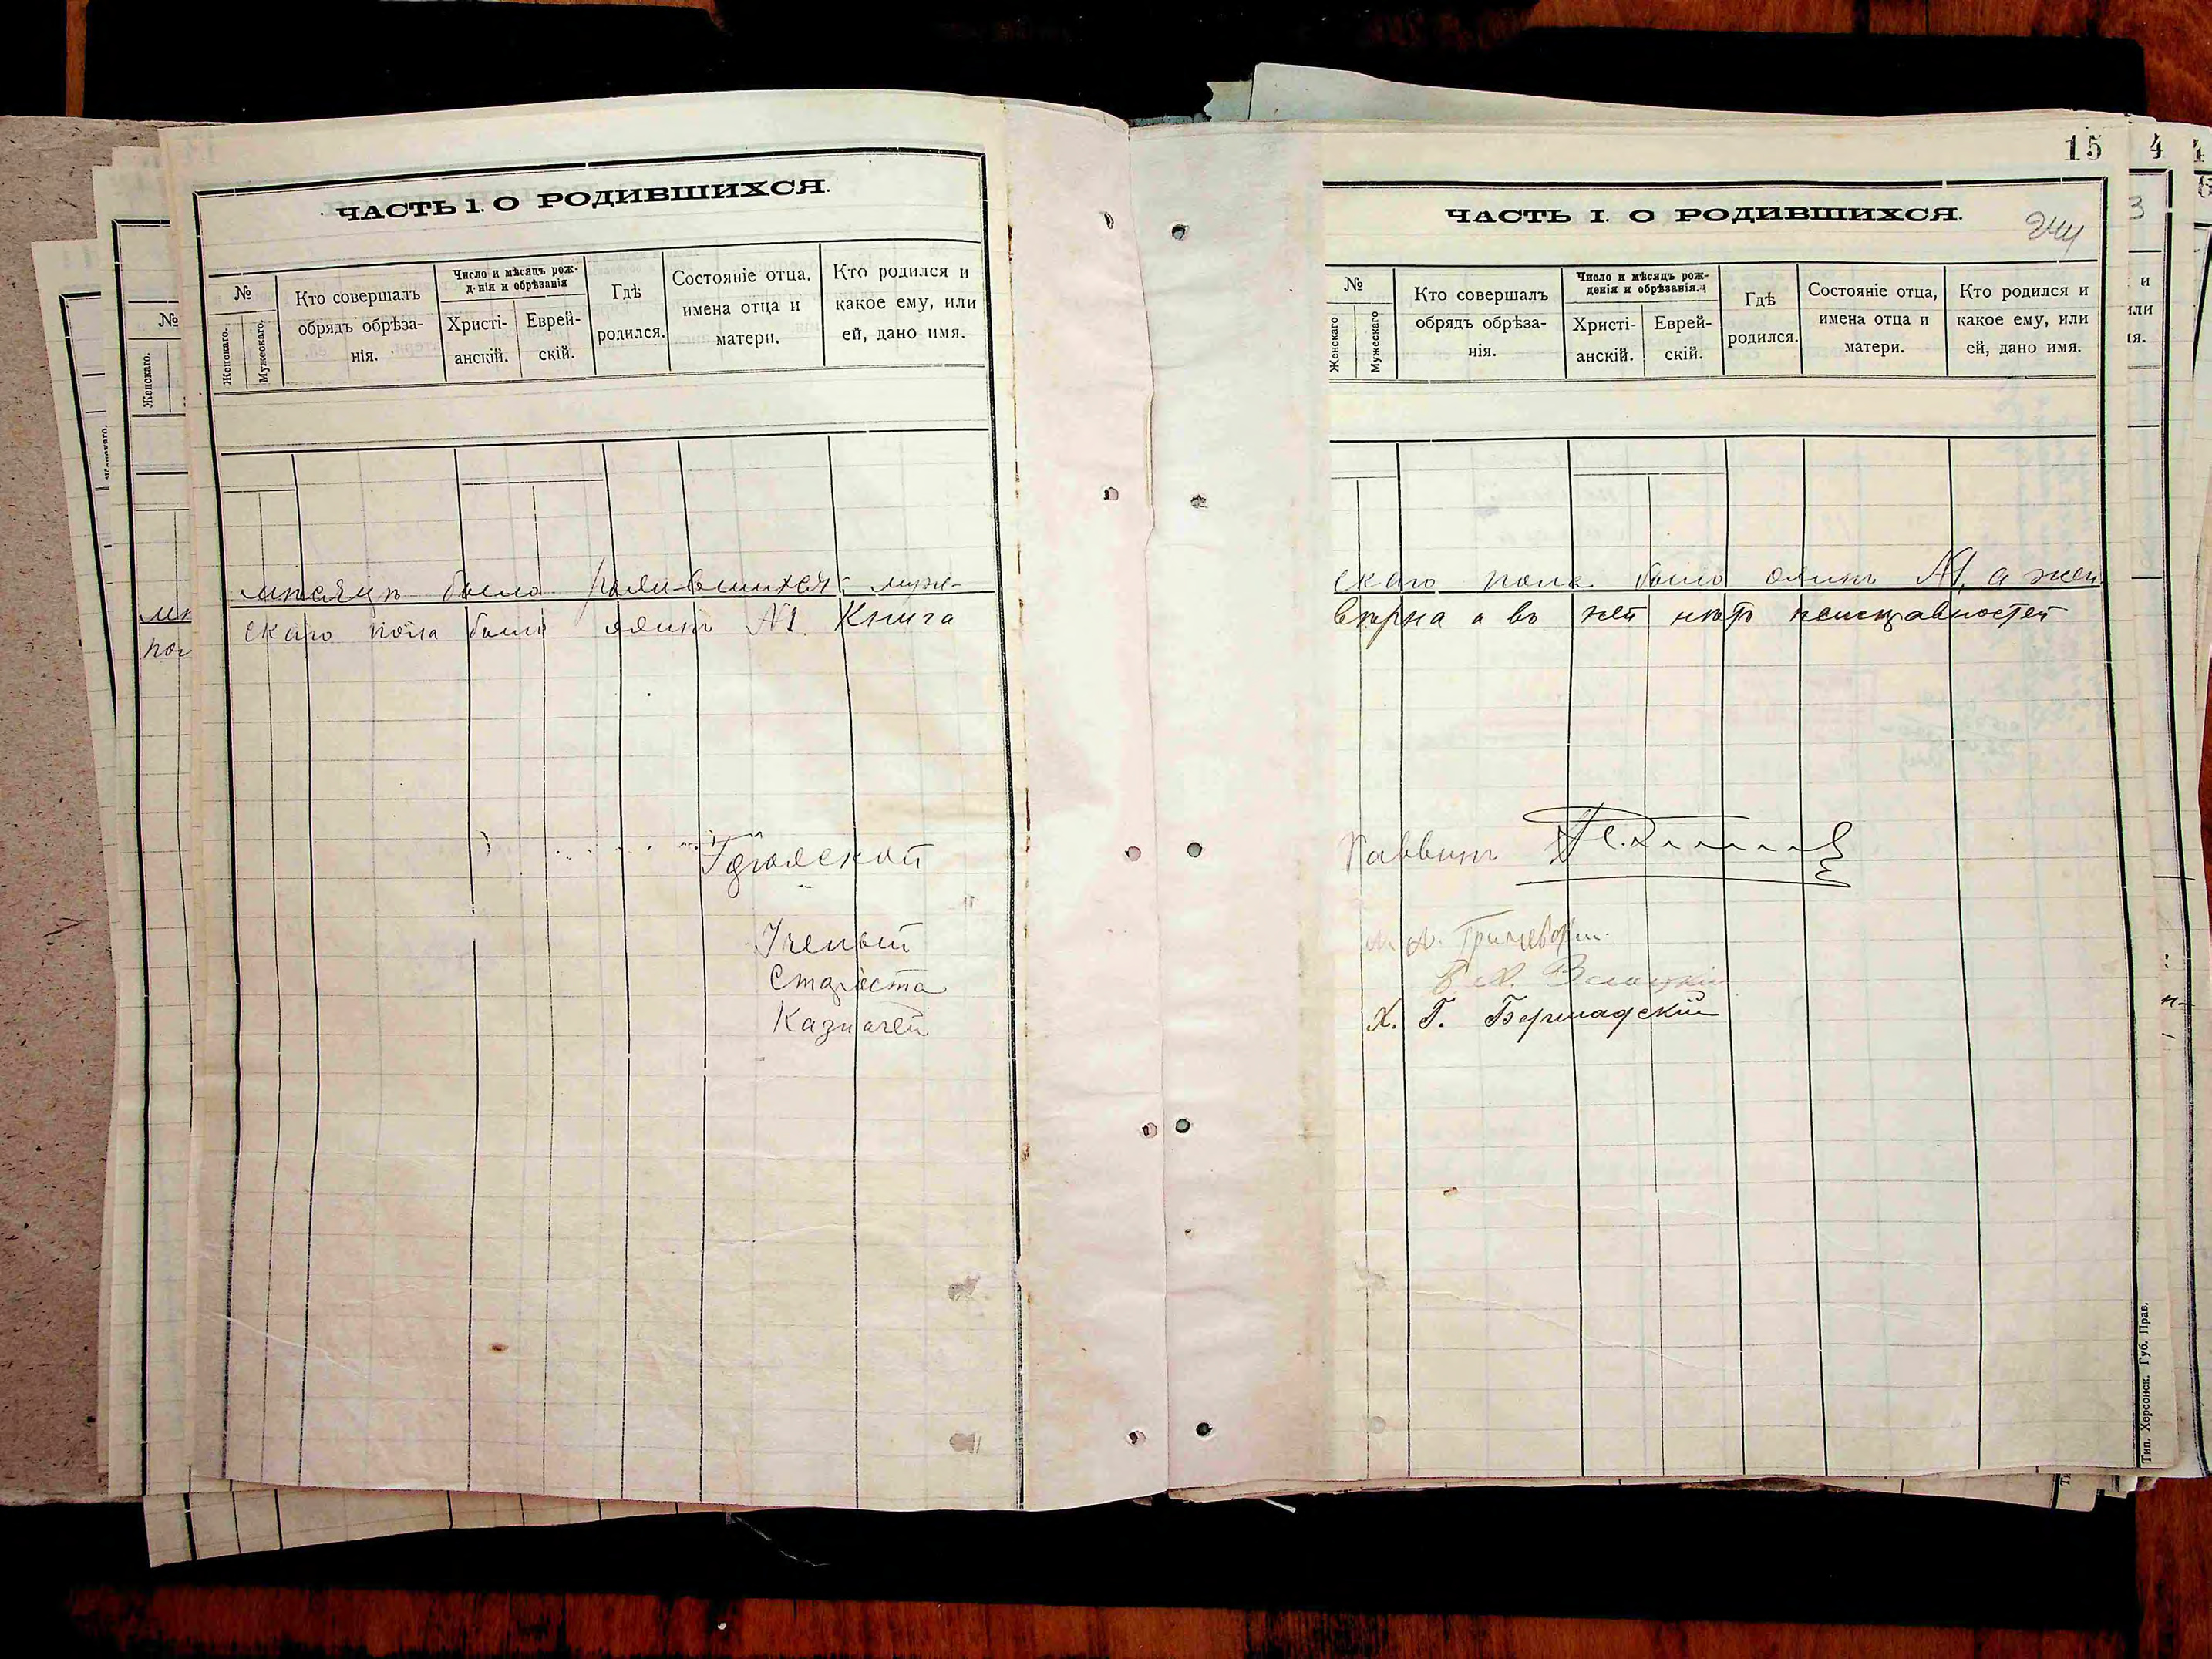 ЧАСТЬ 1. О РОДИВШИХСЯ.
№
Женскаго.
Мужескаго.
Кто совершалъ
обрядъ обрѣза-
нія.
Число и мѣсяцъ рож-
д нія и обрѣзанія
Христі-
анскій.
Еврей-
скій.
Гдѣ
родился.
Состояніе отца,
имена отца и
матери.
Кто родился и
какое ему, или
ей, дано имя.
мѣсяцъ было родившихся: муже-
скаго пола былъ одинъ №1. Книга
Ученый
Староста
Казначей
15
ЧАСТЬ I. О РОДИВШИХСЯ.
244
№
Женскаго
Мужескаго
Кто совершалъ
обрядъ обрѣза-
нія.
Число и мѣсяцъ рож-
денія и обрѣзанія.
Христі-
анскій.
Еврей-
скій.
Гдѣ
родился.
Состояніе отца,
имена отца и
матери.
Кто родился и
какое ему, или
ей, дано имя.
скаго пола было одинъ №1, а жен
вѣрна и въ ней нѣтъ неисправностей
Раввинъ
Х. Г. Бершадскій
Тип. Херсонск. Губ. Прав.
№
Женскаго.
4
3